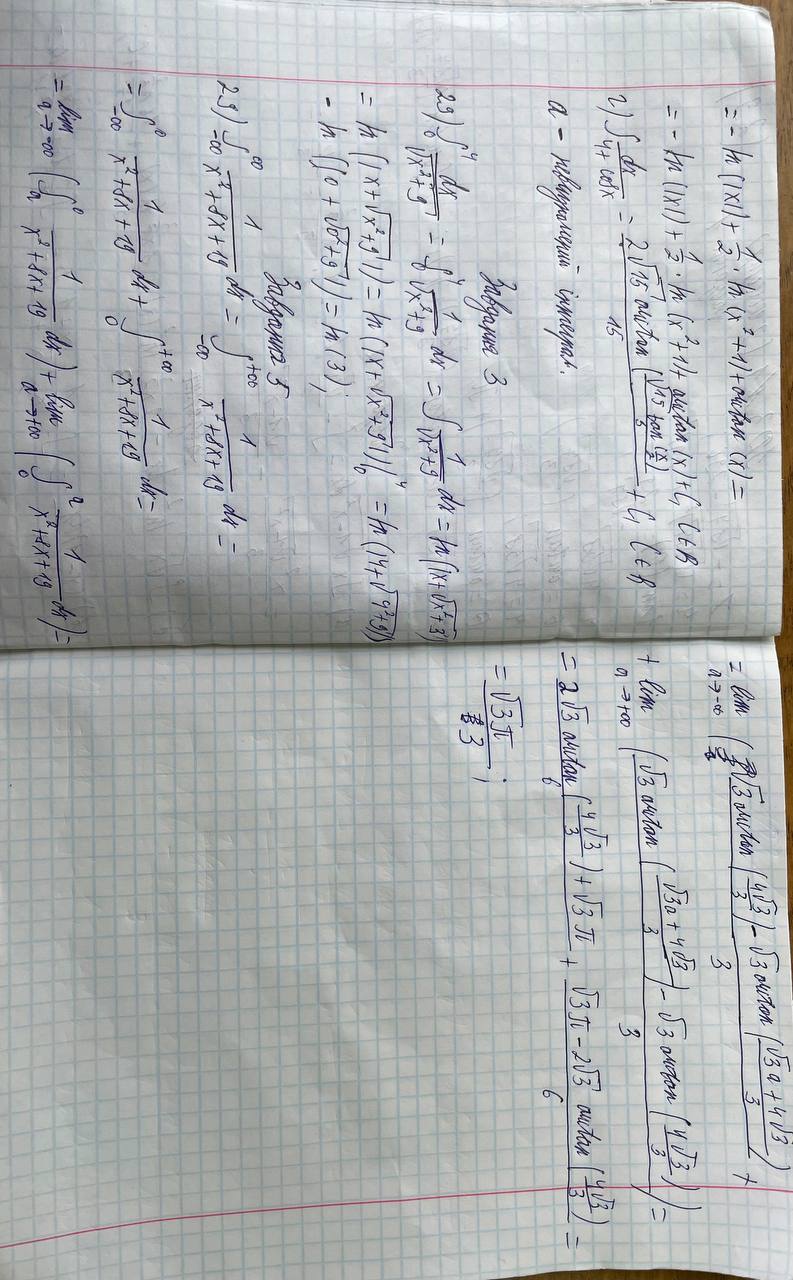 = - ln (|x|) + 1/2 · ln (x² + 1) + arctan (x) =
= - ln (|x|) + 1/2 · ln (x² + 1) + arctan (x) + C, C ∈ R
г) ∫ dx/(4 + cos x) = (2√15 arctan (√15 tan (x/2)/5))/15 + C, C ∈ R
а - невизначений інтеграл.
Завдання 3
29) ∫₀⁴ dx/√(x²+9) = ∫₀⁴ 1/√(x²+9) dx = ∫ 1/√(x²+9) dx = ln (|x + √(x²+3)|)
= ln (|x + √(x²+9)|) = ln (|x + √(x²+9)|)|₀⁴ = ln (|4 + √(4²+9)|)
- ln (|0 + √(0²+9)|) = ln (3);
Завдання 5
29) ∫_{-∞}^{∞} 1/(x²+8x+19) dx = ∫_{-∞}^{+∞} 1/(x²+8x+19) dx =
= ∫_{-∞}^{0} 1/(x²+8x+19) dx + ∫_{0}^{+∞} 1/(x²+8x+19) dx =
= lim_{a→-∞} (∫_{a}^{0} 1/(x²+8x+19) dx) + lim_{a→+∞} (∫_{0}^{a} 1/(x²+8x+19) dx) =
= lim_{a→-∞} ((√3 arctan (4√3/3) - √3 arctan ((√3a + 4√3)/3))/3) +
+ lim_{a→+∞} ((√3 arctan ((√3a + 4√3)/3) - √3 arctan (4√3/3))/3) =
= (2√3 arctan (4√3/3) + √3 π)/6 + (√3 π - 2√3 arctan (4√3/3))/6 =
= √3 π/3;